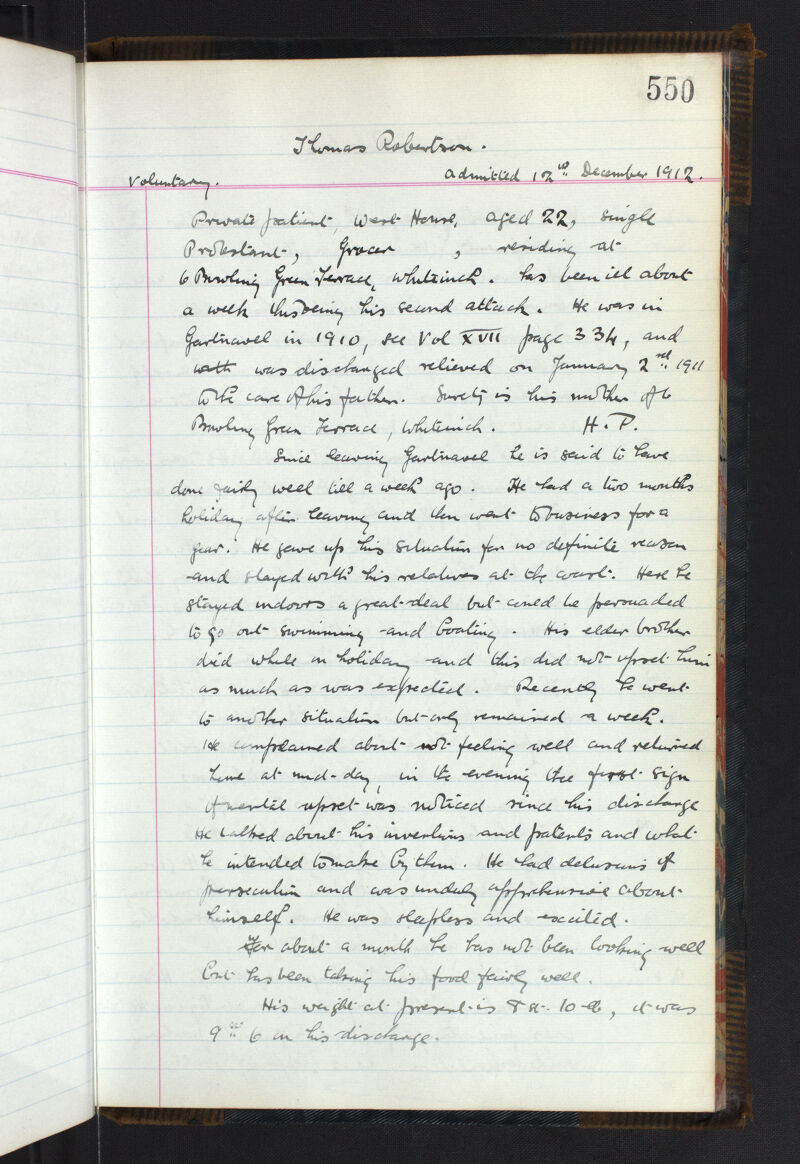 550
Thomas Robertson.
Voluntary. Admitted 12th December 1912.
Private patient, West House, aged 22, single
Protestant, Grocer, residing at
6 Bowling Green Terrace, Whiteinch. Has been ill about
a week this being his second attack. He was in
Gartnavel in 1910, see Vol XVII page 334, and
was discharged relieved on January 2nd 1911
to the care of his father. Surety is his mother of 6
Bowling Green Terrace, Whiteinch. H.P.
Since leaving Gartnavel he is said to have
done fairly well till a week ago. He had a two months
holiday after leaving and then went to business for a
year. He gave up his situation for no definite reason
and stayed with his relatives at the coast. Here he
stayed indoors a great deal but could be persuaded
to go out swimming and boating. His elder brother
died while on holiday and this did not upset him
as much as was expected. Recently he went
to another situation but only remained a week.
He complained about not feeling well and returned
home at mid-day, in the evening the first sign
of mental upset was noticed since his discharge
He talked about his inventions and patents and what
he intended to make by them. He had delusions of
persecution and was unduly apprehensive about
himself. He was sleepless and excited.
For about a month he has not been looking well
but has been taking his food fairly well.
His weight at present is 8 st. 10 lb, it was
9 st 6 on his discharge.